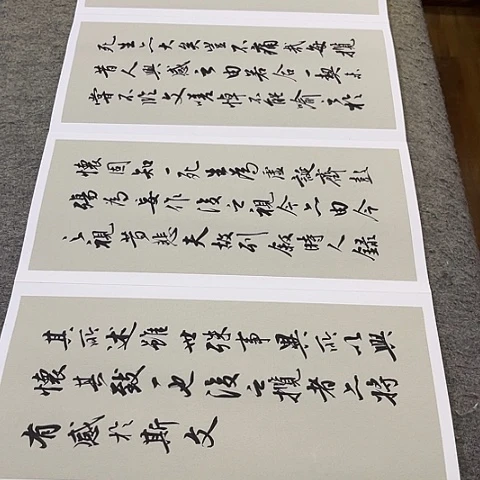 死生亦大矣豈不痛哉每攬
昔人興感之由若合一契未
嘗不臨文嗟悼不能喻之於
懷固知一死生為虛誕齊彭
殤為妄作後之視今亦由今
之視昔悲夫故列敘時人錄
其所述雖世殊事異所以興
懷其致一也後之攬者亦將
有感於斯文